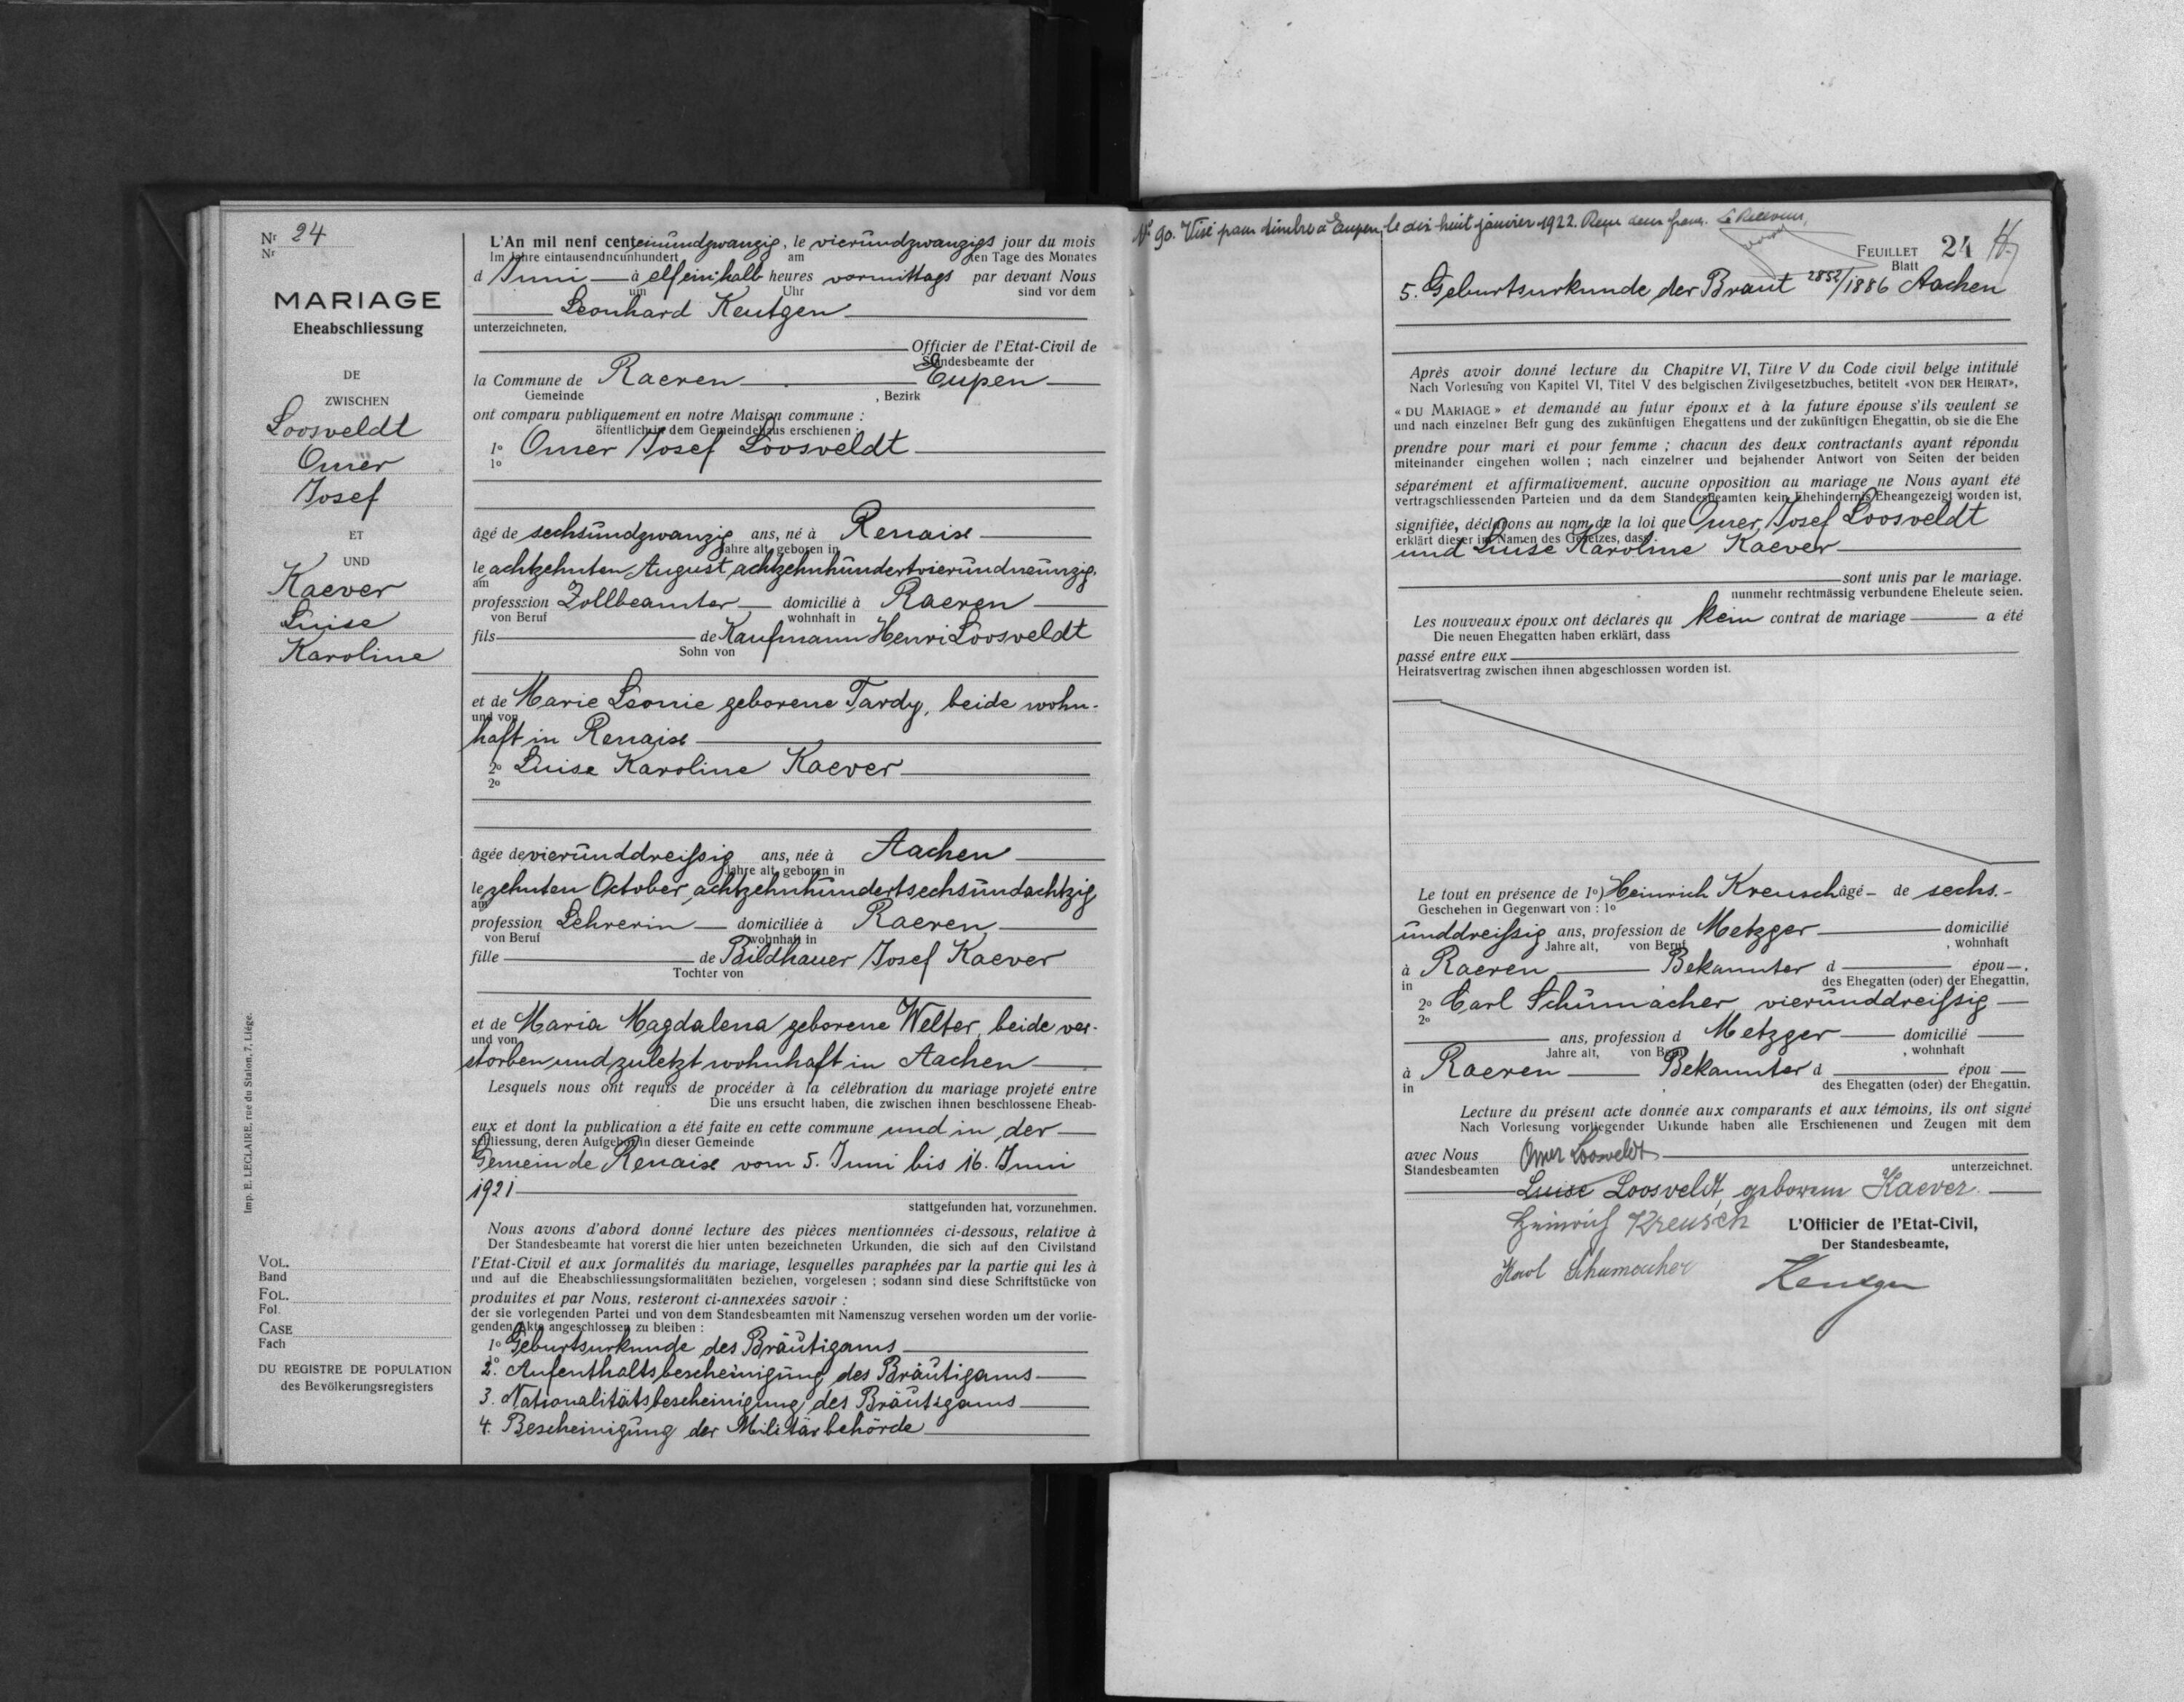 Nr 24
Nr
MARIAGE
Eheabschliessung
DE
ZWISCHEN
Loosveldt
Omer
Josef
ET
UND
Kaever
Luise
Karoline
Imp. E. LECLAIRE, rue du Stalon, 7, Liége.
VOL.
Band
FOL.
Fol.
CASE
Fach
DU REGISTRE DE POPULATION
des Bevölkerungsregisters
L'An mil nenf cent einundzwanzig, le vierundzwanzigs jour du mois
Im Jahre eintausendneunhundert am ten Tage des Monates
d Juni — à elfeinhalb heures vormittags par devant Nous
um Uhr sind vor dem
Leonhard Keutgen
unterzeichneten,
Officier de l'Etat-Civil de
Standesbeamte der
la Commune de Raeren Eupen
Gemeinde , Bezirk
ont comparu publiquement en notre Maison commune :
öffentlich in dem Gemeindehaus erschienen :
1o Omer Josef Loosveldt
1o
âgé de sechsundzwanzig ans, né à Renaise
Jahre alt, geboren in
le achtzehnten August achtzehnhundertvierundneunzig,
am
professsion Zollbeamter — domicilié à Raeren
von Beruf wohnhaft in
fils — de Kaufmann Henri Loosveldt
Sohn von
et de Marie Léonie geborene Tardy, beide wohn-
und von
haft in Renaise
2o Luise Karoline Kaever
2o
âgée de vierunddreißig ans, née à Aachen
Jahre alt, geboren in
le zehnten October achtzehnhundertsechsundachtzig
am
profession Lehrerin — domiciliée à Raeren
von Beruf wohnhaft in
fille — de Bildhauer Josef Kaever
Tochter von
et de Maria Magdalena geborene Welter, beide ver-
und von
storben und zuletzt wohnhaft in Aachen
Lesquels nous ont requis de procéder à la célébration du mariage projeté entre
Die uns ersucht haben, die zwischen ihnen beschlossene Eheab-
eux et dont la publication a été faite en cette commune und in der
schliessung, deren Aufgebot in dieser Gemeinde
Gemeinde Renaise vom 5. Juni bis 16. Juni
1921
stattgefunden hat, vorzunehmen.
Nous avons d'abord donné lecture des pièces mentionnées ci-dessous, relative à
Der Standesbeamte hat vorerst die hier unten bezeichneten Urkunden, die sich auf den Civilstand
l'Etat-Civil et aux formalités du mariage, lesquelles paraphées par la partie qui les à
und auf die Eheabschliessungsformalitäten beziehen, vorgelesen ; sodann sind diese Schriftstücke von
produites et par Nous, resteront ci-annexées savoir :
der sie vorlegenden Partei und von dem Standesbeamten mit Namenszug versehen worden um der vorlie-
genden Akte angeschlossen zu bleiben :
1o Geburtsurkunde des Bräutigams
1o
2. Aufenthaltsbescheinigung des Bräutigams
3. Nationalitätsbescheinigung des Bräutigams
4. Bescheinigung der Militärbehörde
No 90. Visé pour timbre à Eupen, le dix huit janvier 1922. Reçu deux francs. Le Receveur,
FEUILLET 24
Blatt
5. Geburtsurkunde der Braut 2852/1886 Aachen
Après avoir donné lecture du Chapitre VI, Titre V du Code civil belge intitulé
Nach Vorlesung von Kapitel VI, Titel V des belgischen Zivilgesetzbuches, betitelt «VON DER HEIRAT»,
« DU MARIAGE » et demandé au futur époux et à la future épouse s'ils veulent se
und nach einzelner Befr gung des zukünftigen Ehegattens und der zukünftigen Ehegattin, ob sie die Ehe
prendre pour mari et pour femme ; chacun des deux contractants ayant répondu
miteinander eingehen wollen ; nach einzelner und bejahender Antwort von Seiten der beiden
séparément et affirmativement, aucune opposition au mariage ne Nous ayant été
vertragschliessenden Parteien und da dem Standesbeamten kein Ehehindernis Eheangezeigt worden ist,
signifiée, déclarons au nom de la loi que Omer Josef Loosveldt
erklärt dieser im Namen des Gesetzes, dass
und Luise Karoline Kaever
sont unis par le mariage.
nunmehr rechtmässig verbundene Eheleute seien.
Les nouveaux époux ont déclarés qu kein contrat de mariage — a été
Die neuen Ehegatten haben erklärt, dass
passé entre eux
Heiratsvertrag zwischen ihnen abgeschlossen worden ist.
Le tout en présence de 1o) Heinrich Kreusch âgé — de sechs-
Geschehen in Gegenwart von : 1o
unddreißig ans, profession de Metzger — domicilié
Jahre alt, von Beruf , wohnhaft
à Raeren — Bekannter d — épou —.
in des Ehegatten (oder) der Ehegattin,
2o Carl Schumacher vierunddreißig —
2o
ans, profession d Metzger — domicilié —
Jahre alt, von Beruf , wohnhaft
à Raeren — Bekannter d — épou —
in des Ehegatten (oder) der Ehegattin.
Lecture du présent acte donnée aux comparants et aux témoins, ils ont signé
Nach Vorlesung vorliegender Urkunde haben alle Erschienenen und Zeugen mit dem
avec Nous Omer Loosveldt
Standesbeamten unterzeichnet.
Luise Loosveldt, geborene Kaever.
Heinrich Kreusch L'Officier de l'Etat-Civil,
Der Standesbeamte,
Karl Schumacher Keutgen